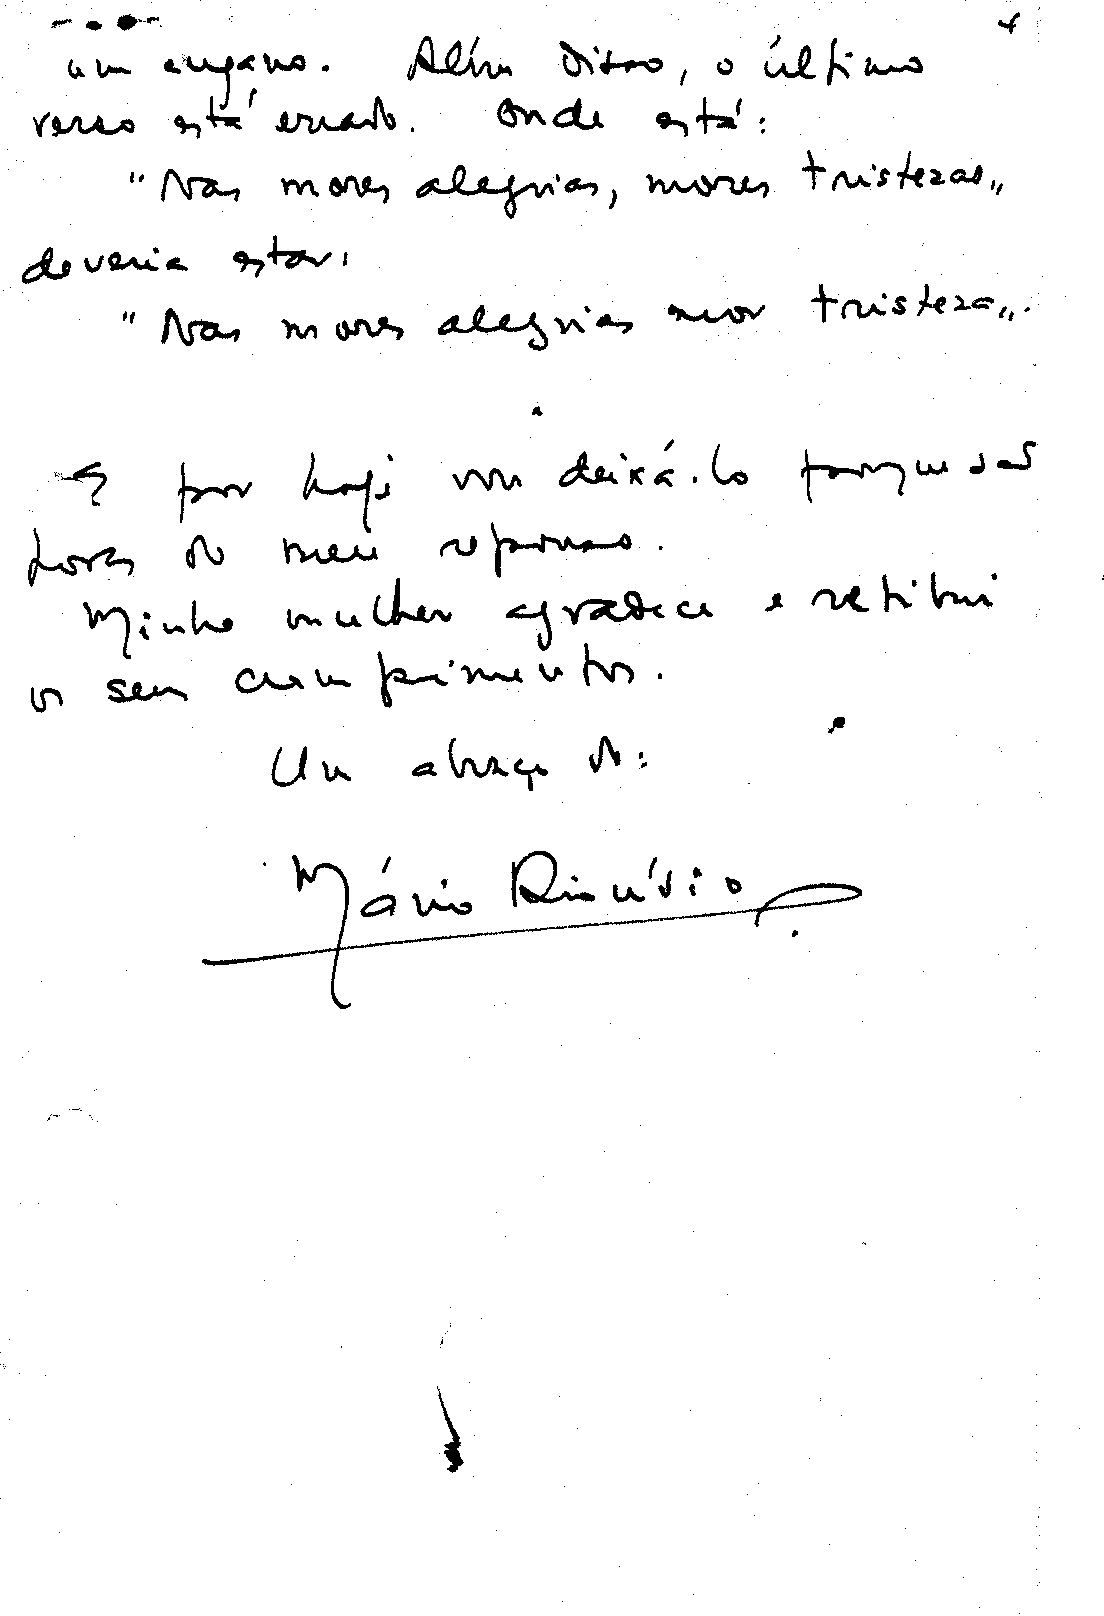 4
um engano. Além disso, o último
verso está errado. Onde está:
"Nas mores alegrias, mores tristezas"
deveria estar:
"Nas mores alegrias mor tristeza".
E por hoje vou deixá-lo porque são
horas do meu repouso.
Minha mulher agradece e retribui
os seus cumprimentos.
Um abraço do:
Mário Dionísio